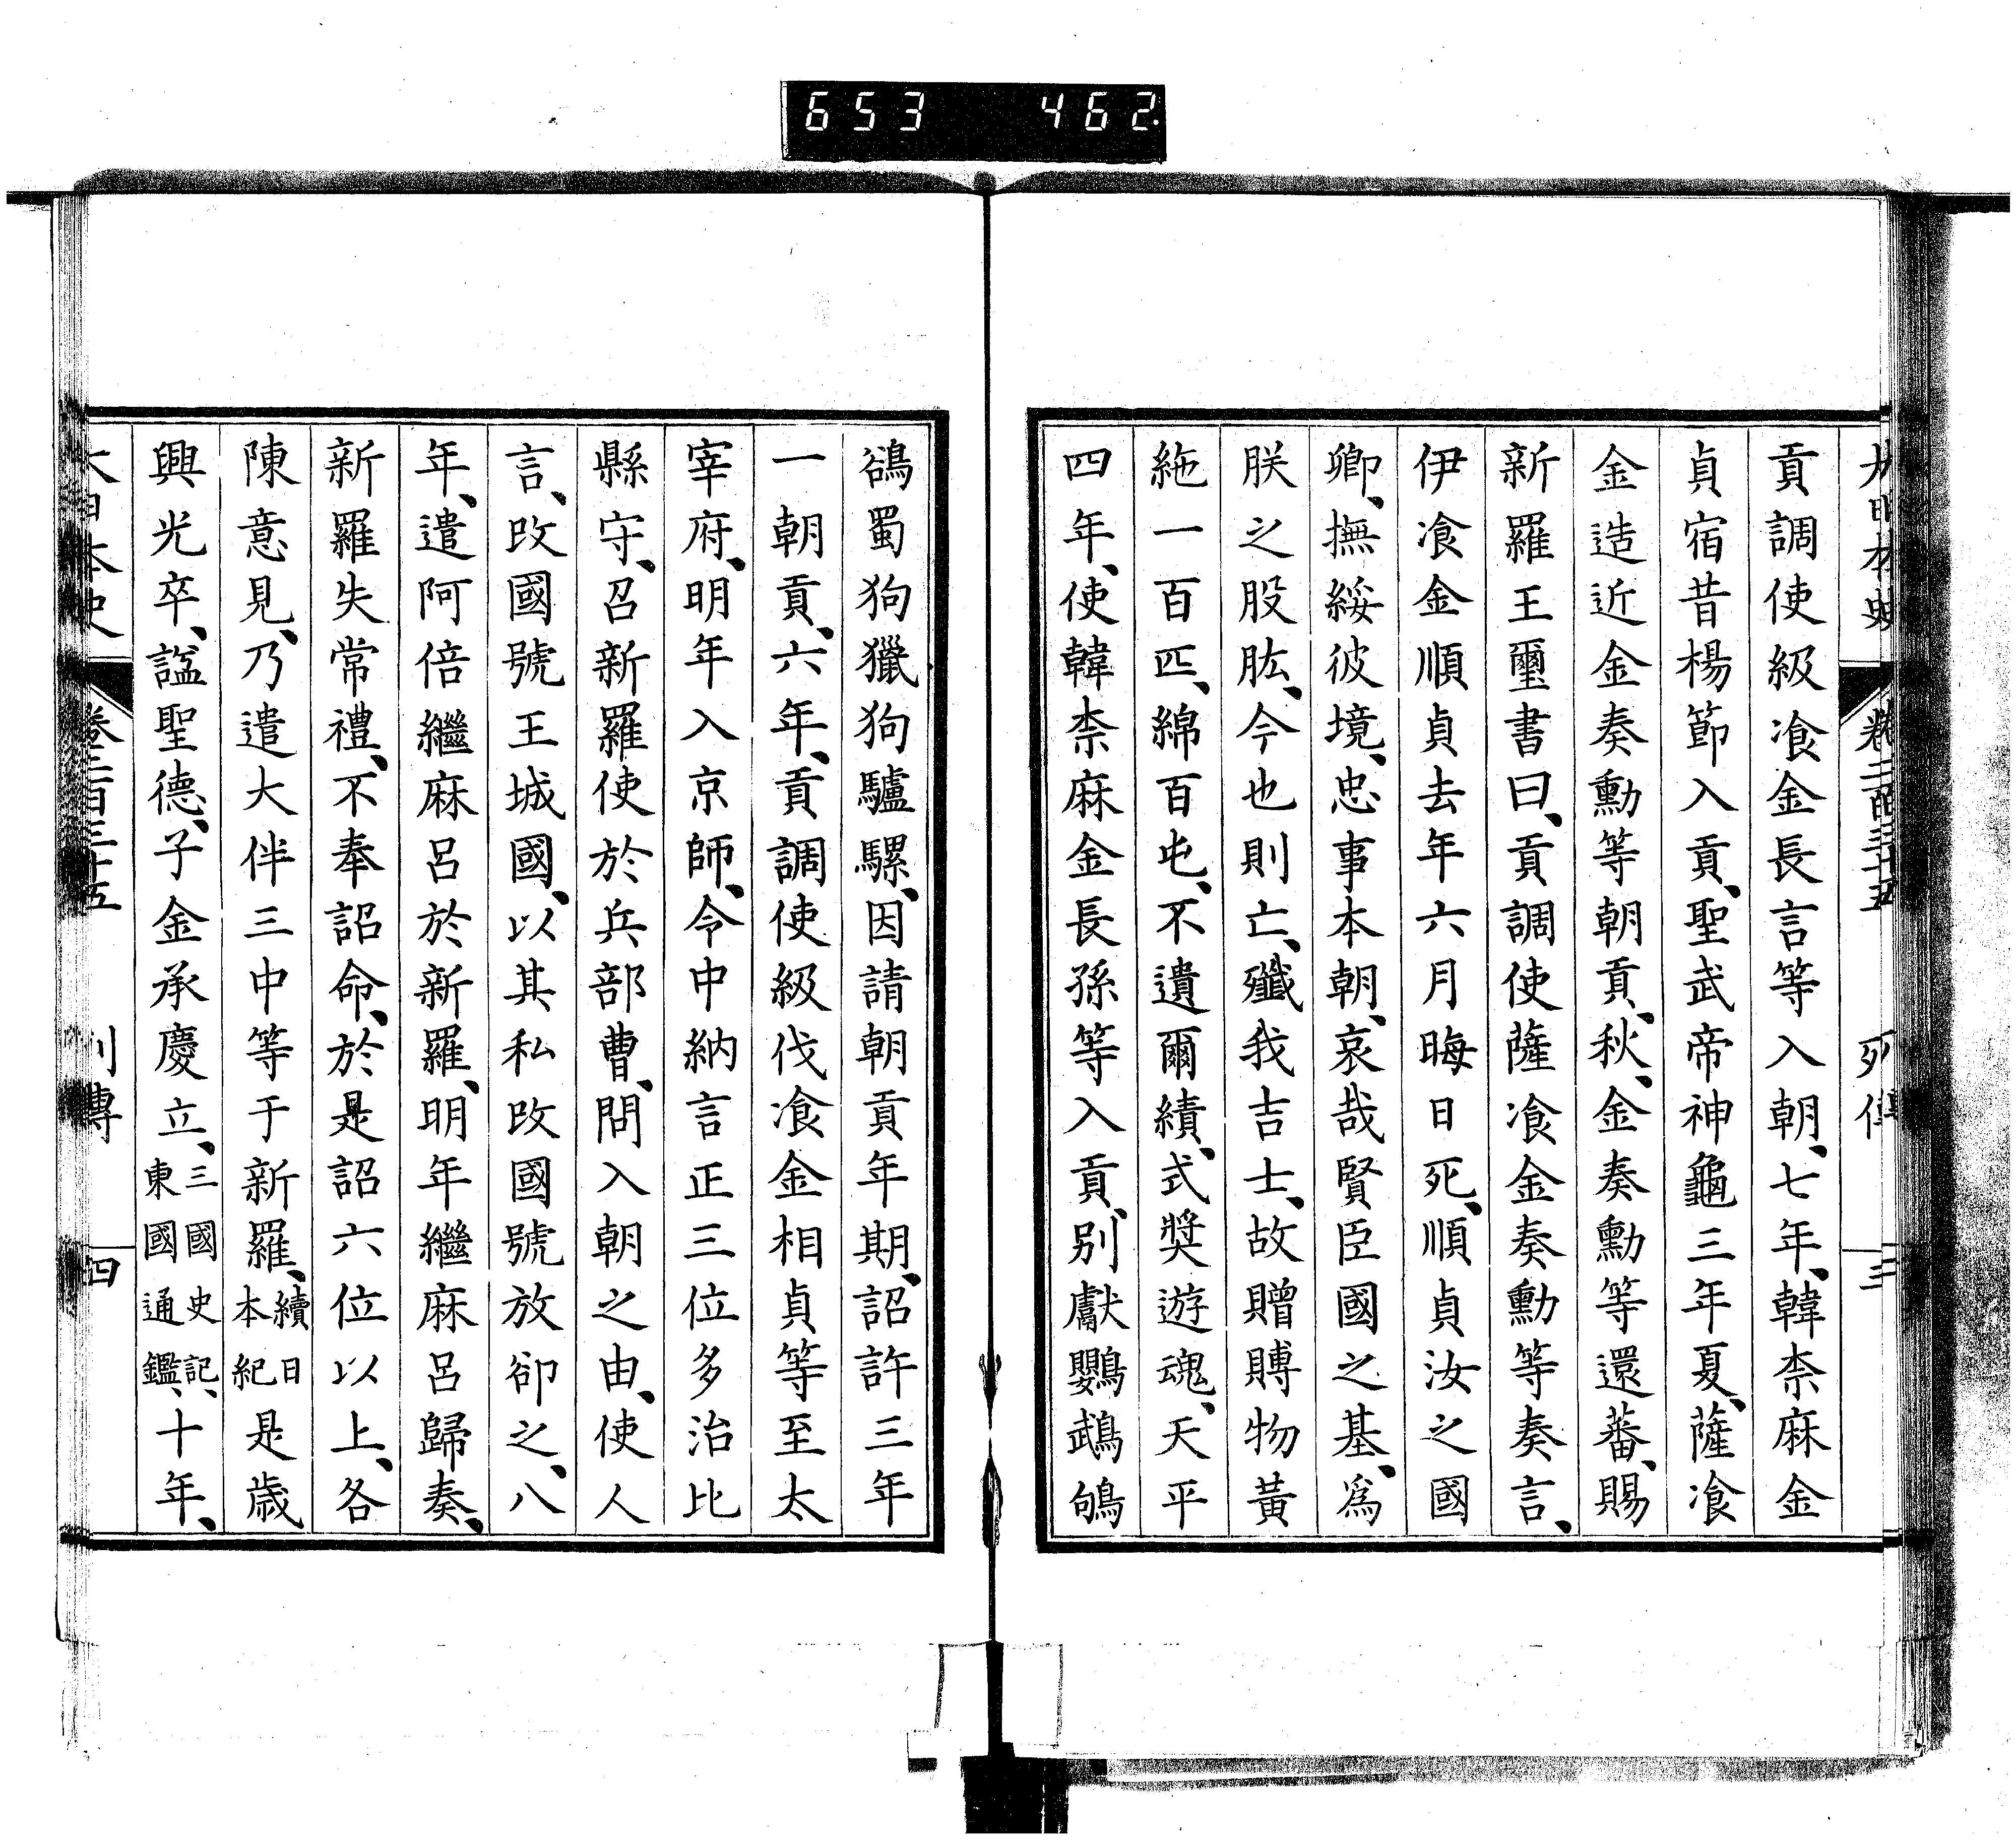 653 462
大日本史 卷二百三十五 列傳 三
貢調使級飡金長言等入朝、七年、韓柰麻金
貞宿昔楊節入貢、聖武帝神龜三年夏、薩飡
金造近金奏勳等朝貢、秋、金奏勳等還蕃、賜
新羅王璽書曰、貢調使薩飡金奏勳等奏言、
伊飡金順貞去年六月晦日死、順貞汝之國
卿、撫綏彼境、忠事本朝、哀哉賢臣國之基、爲
朕之股肱、今也則亡、殲我吉士、故贈賻物黃
絁一百匹、綿百屯、不遺爾績、式奬遊魂、天平
四年、使韓柰麻金長孫等入貢、別獻鸚鵡鴝
鵒蜀狗獵狗驢騾、因請朝貢年期、詔許三年
一朝貢、六年、貢調使級伐飡金相貞等至太
宰府、明年入京師、令中納言正三位多治比
縣守、召新羅使於兵部曹、問入朝之由、使人
言、改國號王城國、以其私改國號放卻之、八
年、遣阿倍繼麻呂於新羅、明年繼麻呂歸奏、
新羅失常禮、不奉詔命、於是詔六位以上、各
陳意見、乃遣大伴三中等于新羅、續日本紀是歲
興光卒、諡聖德、子金承慶立、三國史記、東國通鑑、十年、
大日本史 卷二百三十五 列傳 四